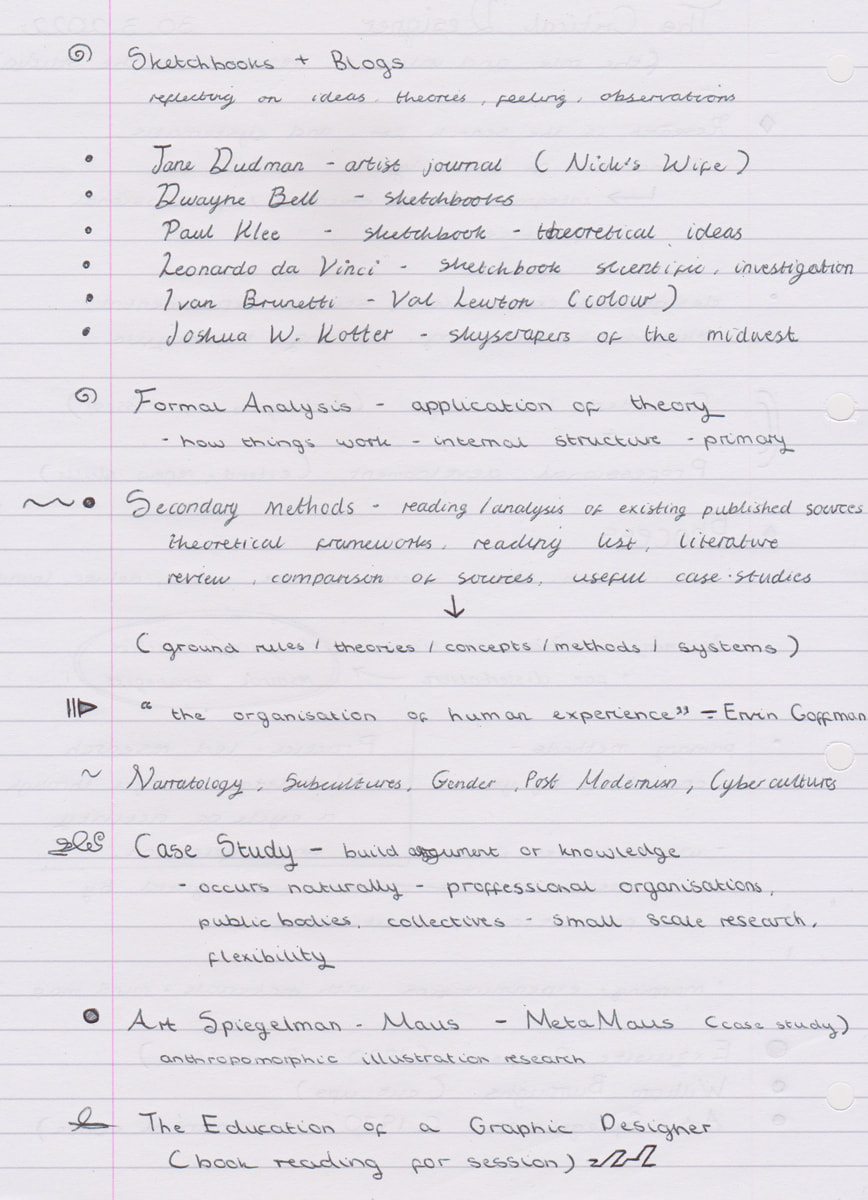 Sketchbooks + Blogs
reflecting on ideas, theories, feeling, observations
• Jane Dudman - artist journal (Nick's Wife)
• Dwayne Bell - sketchbooks
• Paul Klee - sketchbook - theoretical ideas
• Leonardo da Vinci - sketchbook scientific, investigation
• Ivan Brunetti - Val Lewton (colour)
• Joshua W. Kotter - skyscrapers of the midwest
Formal Analysis - application of theory
- how things work - internal structure - primary
• Secondary methods - reading / analysis of existing published sources
theoretical frameworks, reading list, literature
review, comparison of sources, useful case studies
↓
(ground rules / theories / concepts / methods / systems)
"the organisation of human experience" - Ervin Goffman
~ Narratology, Subcultures, Gender, Post Modernism, Cybercultures
Case Study - build argument or knowledge
- occurs naturally - proffessional organisations,
public bodies, collectives - small scale research,
flexibility
• Art Spiegelman - Maus - MetaMaus (case study)
anthropomorphic illustration research
The Education of a Graphic Designer
(book reading for session)